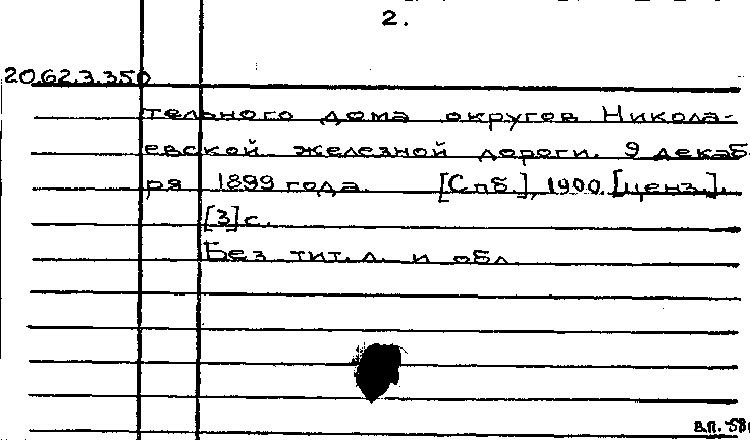 2.
20.62.3.350
тельного дома округов Никола-
евской железной дороги. 9 декаб
ря 1899 года. [Спб.], 1900 [ценз.].
[3] с.
Без тит. л. и обл.